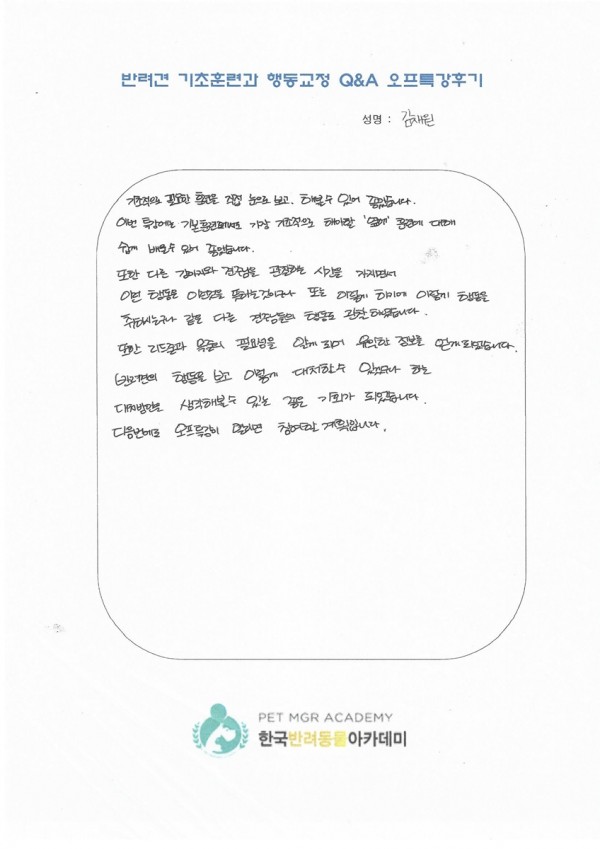 반려견 기초훈련과 행동교정 Q&A 오프특강후기
성명 : 김채원
기초적으로 필요한 훈련을 직접 눈으로 보고, 해볼수 있어 좋았습니다.
이번 특강에는 기본훈련에서도 가장 기초적으로 해야할 '옆에' 훈련에 대해
쉽게 배울수 있어 좋았습니다.
또한 다른 강아지와 견주님을 관찰하는 시간을 가지면서
이런 행동은 이런뜻을 뜻하는것이구나 또는 이렇게 하기에 이렇게 행동을
취하시는구나 같은 다른 견주님들의 행동도 관찰해보았습니다.
또한 리드줄과 목줄의 필요성을 알게되며 유익한 정보를 얻게되었습니다.
반려견의 행동을 보고 이렇게 대처할수 있겠구나 하는
대처방안도 생각해볼수 있는 좋은 기회가 되었습니다.
다음번에도 오프특강이 열리면 참여할 계획입니다.
PET MGR ACADEMY
한국반려동물아카데미